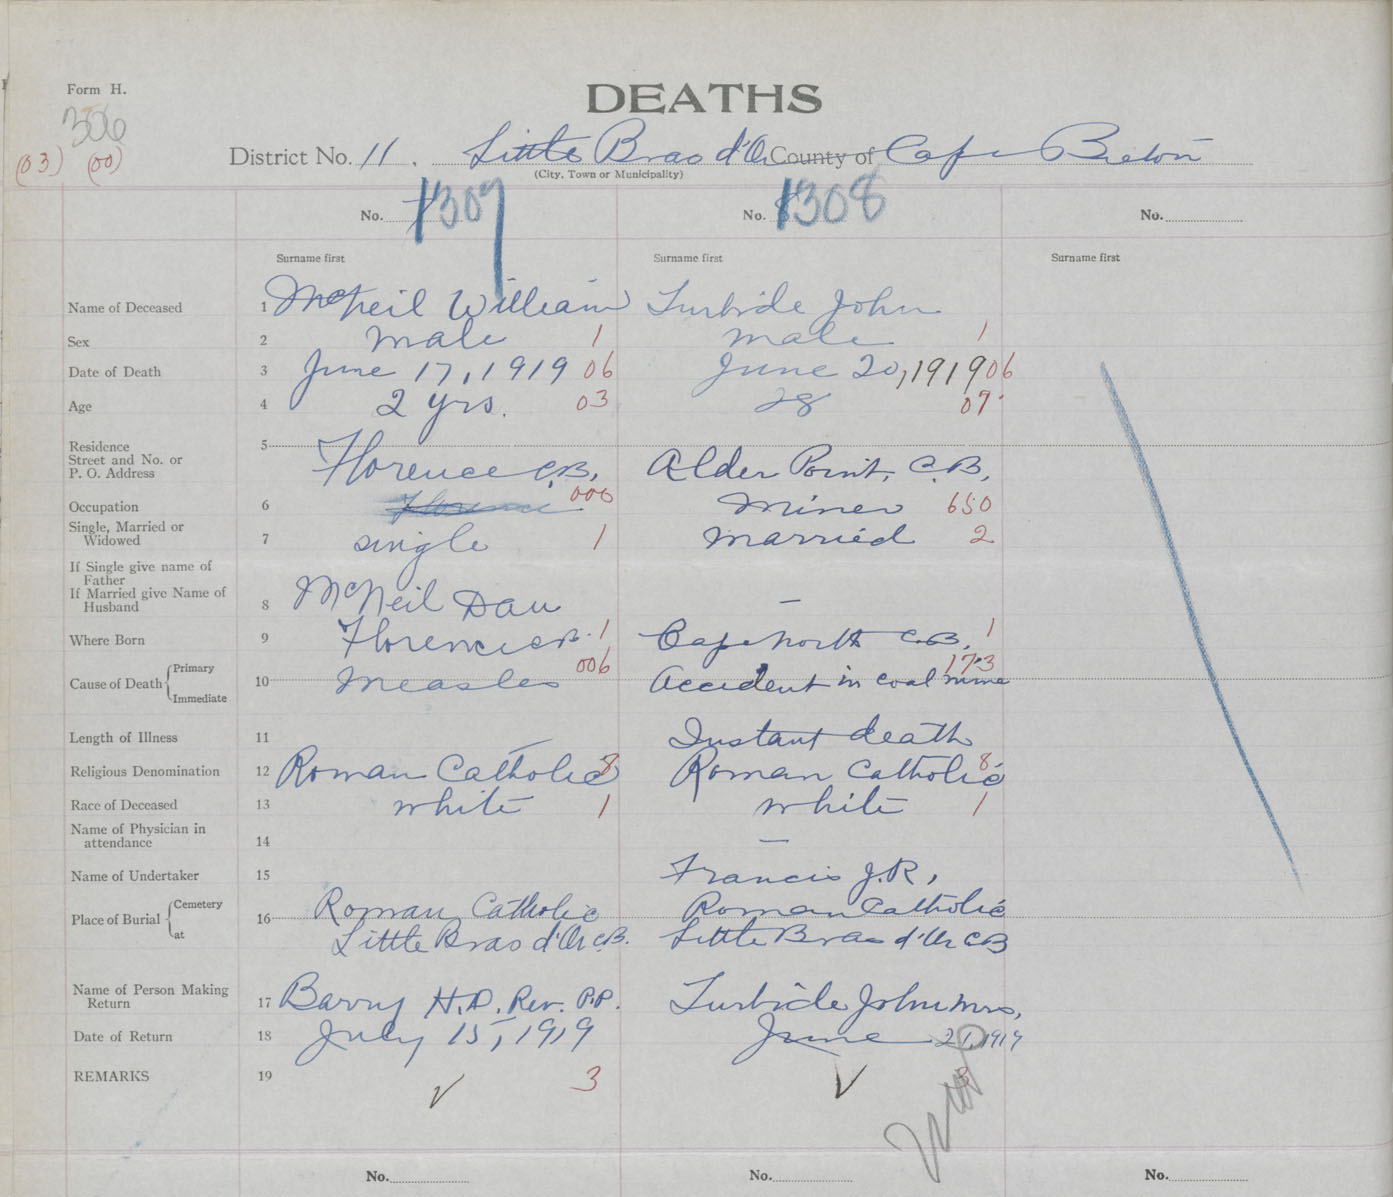 Form H.
DEATHS
306
(03) (00)
District No. 11. Little Bras d'Or County of Cape Breton
(City, Town or Municipality)
No. 307 No. 308 No.
Surname first Surname first Surname first
Name of Deceased 1 McNeil William Turbide John
Sex 2 male 1 male 1
Date of Death 3 June 17, 1919 06 June 20, 1919 06
Age 4 2 yrs. 03 28 07
Residence 5
Street and No. or
P. O. Address Florence C.B. Alder Point, C.B.
Occupation 6 Florence 000 Miner 650
Single, Married or
Widowed 7 single 1 married 2
If Single give name of
Father
If Married give Name of
Husband 8 McNeil Dan —
Where Born 9 Florence C.B. 1 Cape North C.B. 1
Cause of Death Primary 006 173
10 Measles Accident in coal mine
Immediate
Length of Illness 11 Instant death
Religious Denomination 12 Roman Catholic 8 Roman Catholic 8
Race of Deceased 13 white 1 white 1
Name of Physician in
attendance 14 —
Name of Undertaker 15 Francis J.R,
Place of Burial Cemetery 16 Roman Catholic Roman Catholic
at Little Bras d'Or C.B. Little Bras d'Or C B
Name of Person Making
Return 17 Barry H.D. Rev. P.P. Turbide John Mrs.
Date of Return 18 July 15, 1919 June 21, 1919
REMARKS 19 3 3
No. No. No.